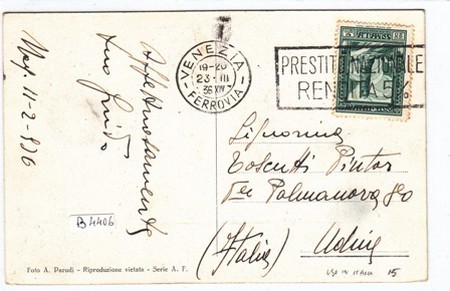 Mog. 11-2-936
Affettuosamente
tuo Guido
VENEZIA
19-20
23·III
36 XIV
FERROVIA
PRESTITO NAZIONALE
RENDITA 5%
Signorina
Tosenti Pintor
Palmanova 80
(Italia) Udine
B4406
Foto A. Parodi - Riproduzione vietata - Serie A. F.
USO IN ITALIA 15